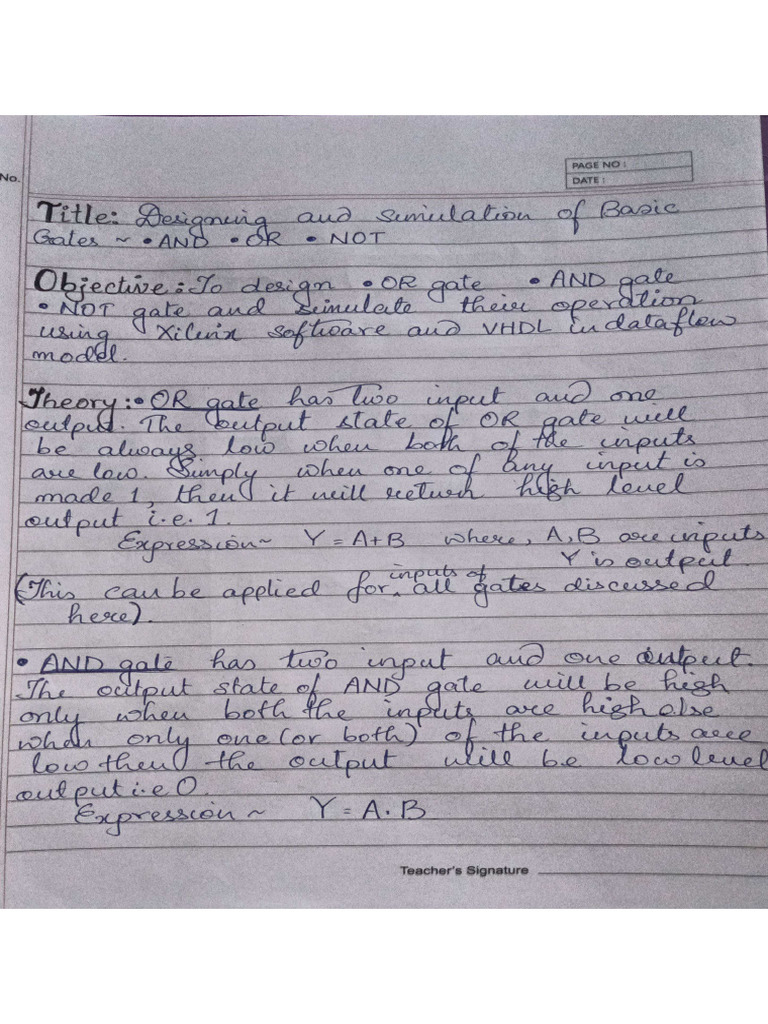 No.
PAGE NO :
DATE :
Title: Designing and simulation of Basic
Gates ~ • AND • OR • NOT
Objective: To design • OR gate • AND gate
• NOT gate and simulate their operation
using Xilinx software and VHDL in dataflow
model.
Theory: • OR gate has two input and one
output. The output state of OR gate will
be always low when both of the inputs
are low. Simply when one of any input is
made 1, then it will return high level
output i.e. 1.
Expression ~ Y = A+B where, A, B are inputs
Y is output.
(This can be applied for inputs of all gates discussed
here).
• AND gate has two input and one output.
The output state of AND gate will be high
only when both the inputs are high else
when only one (or both) of the inputs are
low then the output will be low level
output i.e 0.
Expression ~ Y = A . B
Teacher's Signature